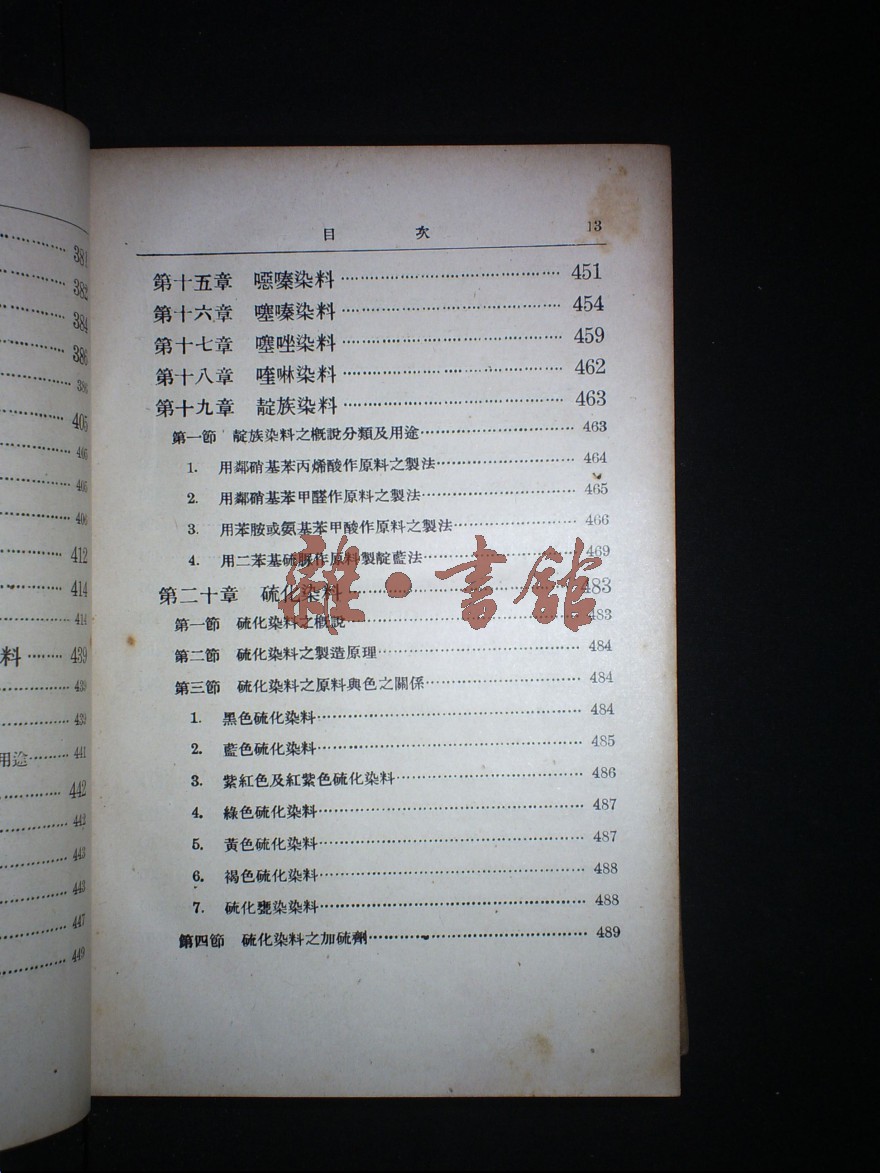 381
382
384
386
386
405
405
405
406
412
414
414
料 439
439
439
用途 441
442
442
443
443
447
449
目 次 13
第十五章 噁嗪染料 451
第十六章 噻嗪染料 454
第十七章 噻唑染料 459
第十八章 喹啉染料 462
第十九章 靛族染料 463
第一節 靛族染料之概說分類及用途 463
1. 用鄰硝基苯丙烯酸作原料之製法 464
2. 用鄰硝基苯甲醛作原料之製法 465
3. 用苯胺或氨基苯甲酸作原料之製法 466
4. 用二苯基硫脲作原料製靛藍法 469
第二十章 硫化染料 483
第一節 硫化染料之概說 483
第二節 硫化染料之製造原理 484
第三節 硫化染料之原料與色之關係 484
1. 黑色硫化染料 484
2. 藍色硫化染料 485
3. 紫紅色及紅紫色硫化染料 486
4. 綠色硫化染料 487
5. 黃色硫化染料 487
6. 褐色硫化染料 488
7. 硫化甕染染料 488
第四節 硫化染料之加硫劑 489
雜·書館